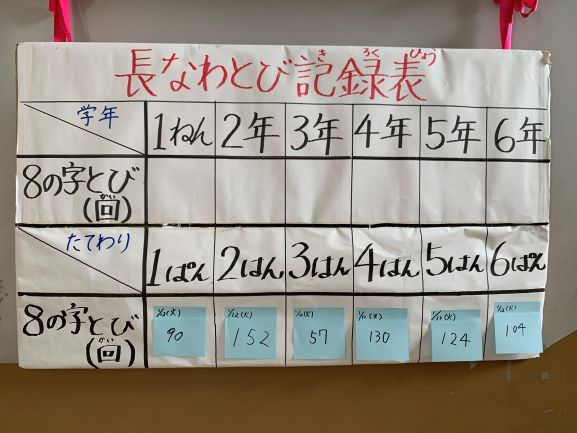 長なわとび記録表
き ろく ひょう
学年 1ねん 2年 3年 4年 5年 6年
8の字とび
(回)
かい
たてわり 1ぱん 2はん 3はん 4はん 5はん 6ぱん
8の字とび
(回)
かい
90 152 57 130 124 104